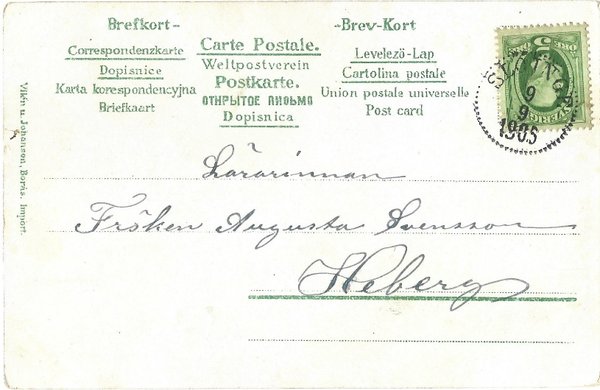 Brefkort -
Correspondenzkarte
Dopisnice
Karta korespondencyjna
Briefkaart
Carte Postale.
Weltpostverein
Postkarte.
ОТКРЫТОЕ ПИСЬМО
Dopisnica
-Brev-Kort
Levelező-Lap
Cartolina postale
Union postale universelle
Post card
SLÖINGE
9
9
1905
SVERIGE
Vikin u. Johanson, Borås. Import.
Lärarinnan
Fröken Augusta Svensson
Heberg